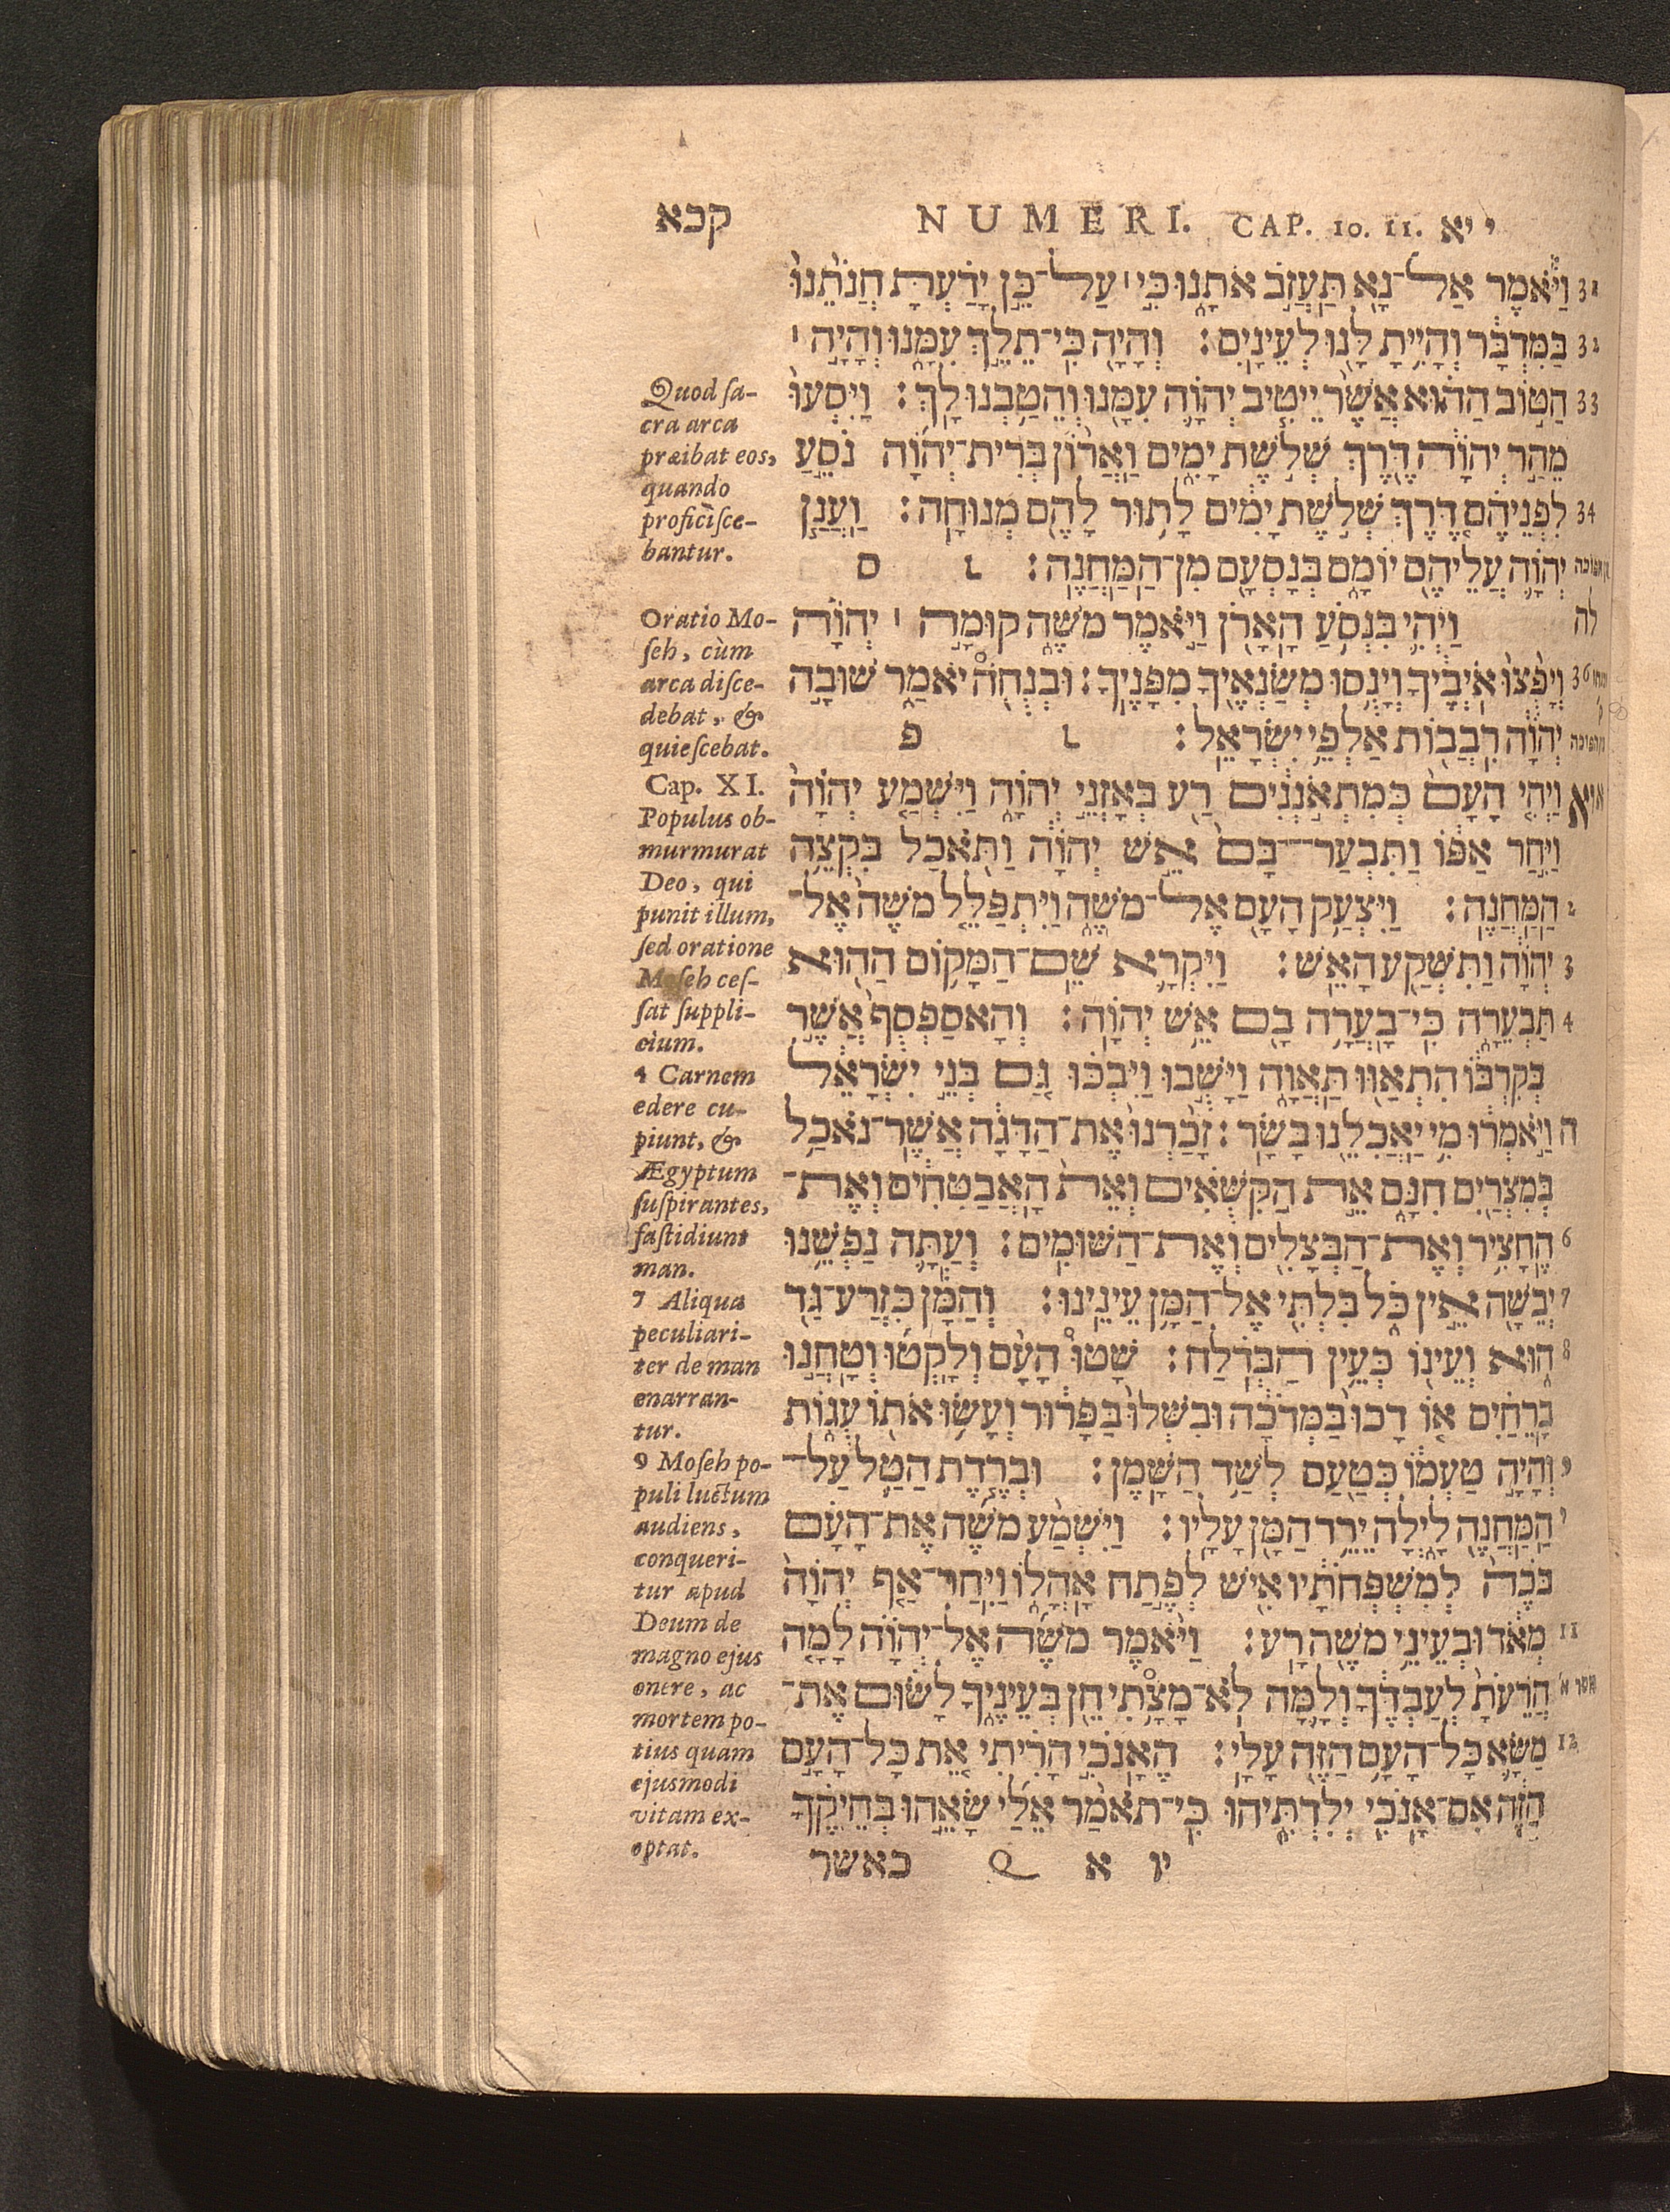 קכא NUMERI. CAP. 10. 11. י יא
31 וַיֹּאמֶר אַל־נָא תַּעֲזֹב אֹתָנוּ כִּי׀ עַל־כֵּן יָדַעְתָּ חֲנֹתֵנוּ
32 בַּמִּדְבָּר וְהָיִיתָ לָּנוּ לְעֵינָיִם׃ וְהָיָה כִּי־תֵלֵךְ עִמָּנוּ וְהָיָה׀
33 הַטּוֹב הַהוּא אֲשֶׁר יֵיטִיב יְהוָֹה עִמָּנוּ וְהֵטַבְנוּ לָךְ׃ וַיִּסְעוּ
מֵהַר יְהוָֹה דֶּרֶךְ שְׁלֹשֶׁת יָמִים וַאֲרוֹן בְּרִית־יְהוָֹה נֹסֵעַ
34 לִפְנֵיהֶם דֶּרֶךְ שְׁלֹשֶׁת יָמִים לָתוּר לָהֶם מְנוּחָה׃ וַעֲנַן
יְהוָֹה עֲלֵיהֶם יוֹמָם בְּנָסְעָם מִן־הַמַּחֲנֶה׃ ׆ ס
לה וַיְהִי בִּנְסֹעַ הָאָרֹן וַיֹּאמֶר מֹשֶׁה קוּמָה׀ יְהוָֹה
36 וְיָפֻצוּ אֹיְבֶיךָ וְיָנֻסוּ מְשַׂנְאֶיךָ מִפָּנֶיךָ׃ וּבְנֻחֹה יֹאמַר שׁוּבָה
יְהוָֹה רִבֲבוֹת אַלְפֵי יִשְׂרָאֵל׃ ׆ פ
יא וַיְהִי הָעָם כְּמִתְאֹנְנִים רַע בְּאָזְנֵי יְהוָֹה וַיִּשְׁמַע יְהוָֹה
וַיִּחַר אַפּוֹ וַתִּבְעַר־בָּם אֵשׁ יְהוָֹה וַתֹּאכַל בִּקְצֵה
2 הַמַּחֲנֶה׃ וַיִּצְעַק הָעָם אֶל־מֹשֶׁה וַיִּתְפַּלֵּל מֹשֶׁה אֶל־
3 יְהוָֹה וַתִּשְׁקַע הָאֵשׁ׃ וַיִּקְרָא שֵׁם־הַמָּקוֹם הַהוּא
4 תַּבְעֵרָה כִּי־בָעֲרָה בָם אֵשׁ יְהוָֹה׃ וְהָאסַפְסֻף אֲשֶׁר
בְּקִרְבּוֹ הִתְאַוּוּ תַּאֲוָה וַיָּשֻׁבוּ וַיִּבְכּוּ גַּם בְּנֵי יִשְׂרָאֵל
ה וַיֹּאמְרוּ מִי יַאֲכִלֵנוּ בָּשָׂר׃ זָכַרְנוּ אֶת־הַדָּגָה אֲשֶׁר־נֹאכַל
בְּמִצְרַיִם חִנָּם אֵת הַקִּשֻּׁאִים וְאֵת הָאֲבַטִּחִים וְאֶת־
6 הֶחָצִיר וְאֶת־הַבְּצָלִים וְאֶת־הַשּׁוּמִים׃ וְעַתָּה נַפְשֵׁנוּ
7 יְבֵשָׁה אֵין כֹּל בִּלְתִּי אֶל־הַמָּן עֵינֵינוּ׃ וְהַמָּן כִּזְרַע־גַּד
8 הוּא וְעֵינוֹ כְּעֵין הַבְּדֹלַח׃ שָׁטוּ הָעָם וְלָקְטוּ וְטָחֲנוּ
בָרֵחַיִם אוֹ דָכוּ בַּמְּדֹכָה וּבִשְּׁלוּ בַּפָּרוּר וְעָשׂוּ אֹתוֹ עֻגוֹת
9 וְהָיָה טַעְמוֹ כְּטַעַם לְשַׁד הַשָּׁמֶן׃ וּבְרֶדֶת הַטַּל עַל־
י הַמַּחֲנֶה לָיְלָה יֵרֵד הַמָּן עָלָיו׃ וַיִּשְׁמַע מֹשֶׁה אֶת־הָעָם
בֹּכֶה לְמִשְׁפְּחֹתָיו אִישׁ לְפֶתַח אָהֳלוֹ וַיִּחַר־אַף יְהוָֹה
11 מְאֹד וּבְעֵינֵי מֹשֶׁה רָע׃ וַיֹּאמֶר מֹשֶׁה אֶל־יְהוָֹה לָמָה
חסר א׳ הֲרֵעֹתָ לְעַבְדֶּךָ וְלָמָּה לֹא־מָצָתִי חֵן בְּעֵינֶיךָ לָשׂוּם אֶת־
12 מַשָּׂא כָּל־הָעָם הַזֶּה עָלָי׃ הֶאָנֹכִי הָרִיתִי אֵת כָּל־הָעָם
הַזֶּה אִם־אָנֹכִי יְלִדְתִּיהוּ כִּי־תֹאמַר אֵלַי שָׂאֵהוּ בְחֵיקֶךָ
יו א Q כאשר
Quod sa-
cra arca
præibat eos,
quando
proficisce-
bantur.
Oratio Mo-
seh, cùm
arca disce-
debat, &
quiescebat.
Cap. XI.
Populus ob-
murmurat
Deo, qui
punit illum,
sed oratione
Moseh ces-
sat suppli-
cium.
4 Carnem
edere cu-
piunt, &
Ægyptum
suspirantes,
fastidiunt
man.
7 Aliqua
peculiari-
ter de man
enarran-
tur.
9 Moseh po-
puli luctum
audiens,
conqueri-
tur apud
Deum de
magno ejus
onere, ac
mortem po-
tius quam
ejusmodi
vitam ex-
optat.